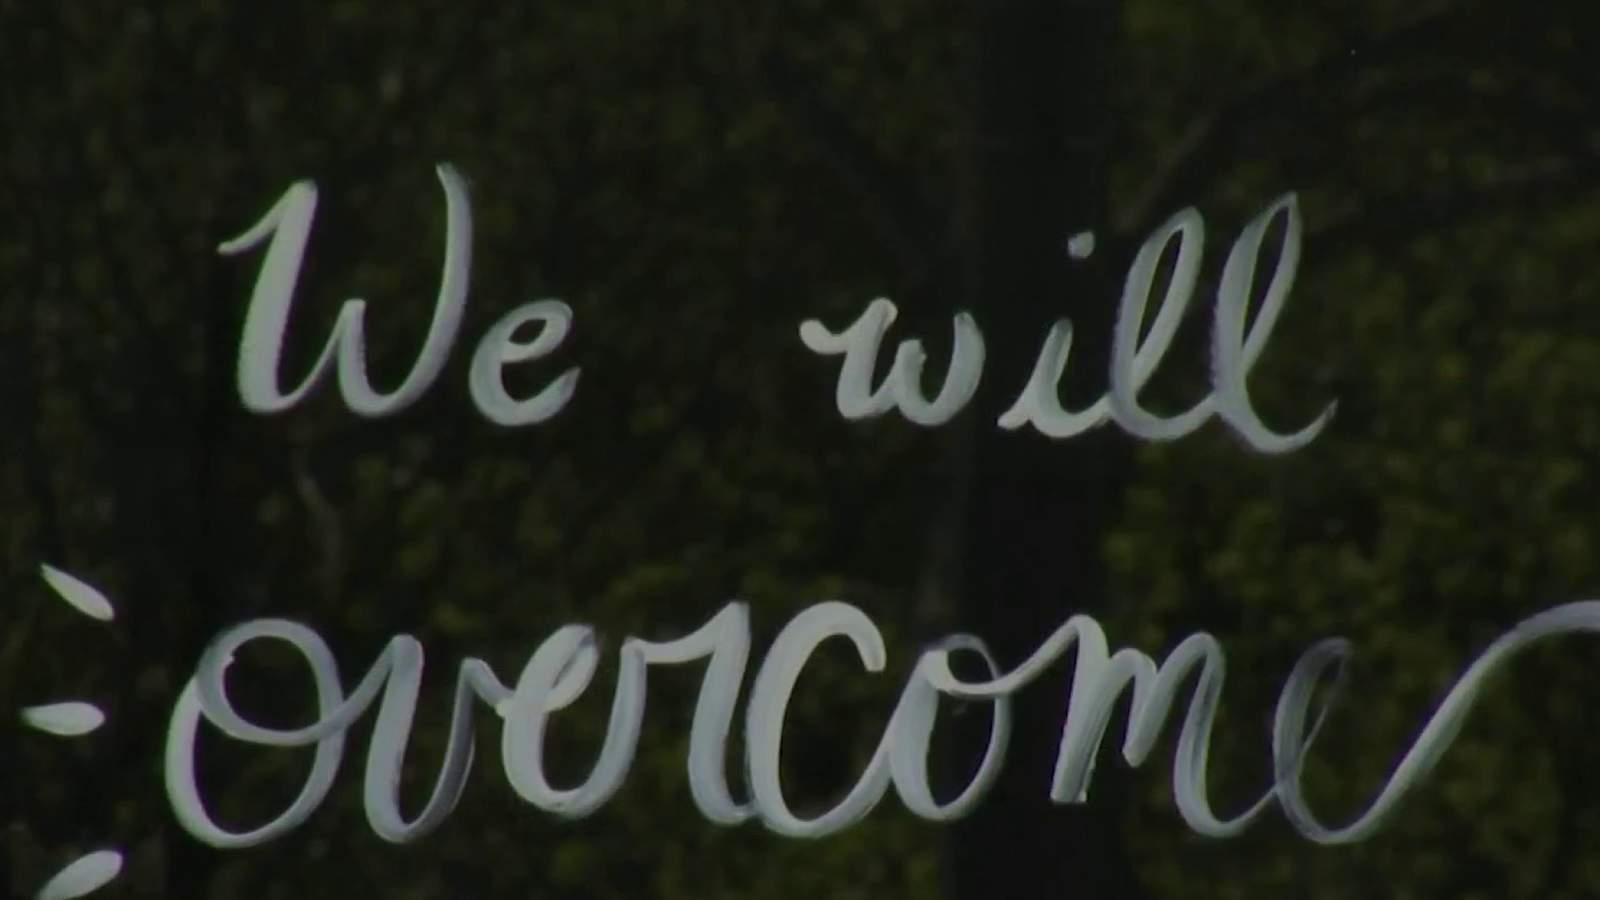 We will
overcome